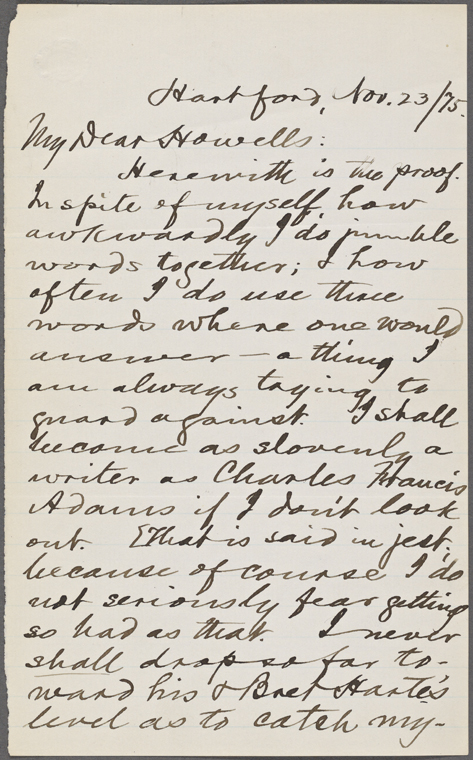 Hartford, Nov. 23/75.
My Dear Howells:
Herewith is the proof.
In spite of myself, how
awkwardly I do jumble
words together; & how
often I do use three
words where one would
answer — a thing I
am always trying to
guard against. I shall
become as slovenly a
writer as Charles Francis
Adams if I don't look
out. [That is said in jest;
because of course I do
not seriously fear getting
so bad as that. I never
shall drop so far to-
ward his & Bret Harte's
level as to catch my-